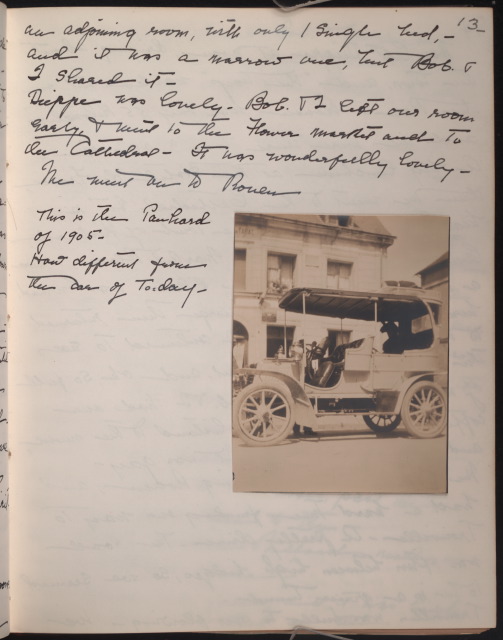 13-
an adjoining room, with only 1 single bed, -
and it was a narrow one, but Bob. &
I shared it -
Dieppe was lovely - Bob. & I left our room
early, & went to the Flower market and to
the Cathedral - It was wonderfully lovely -
We went on to Rouen
This is the Panhard
of 1905 -
How different from
the car of To-day -